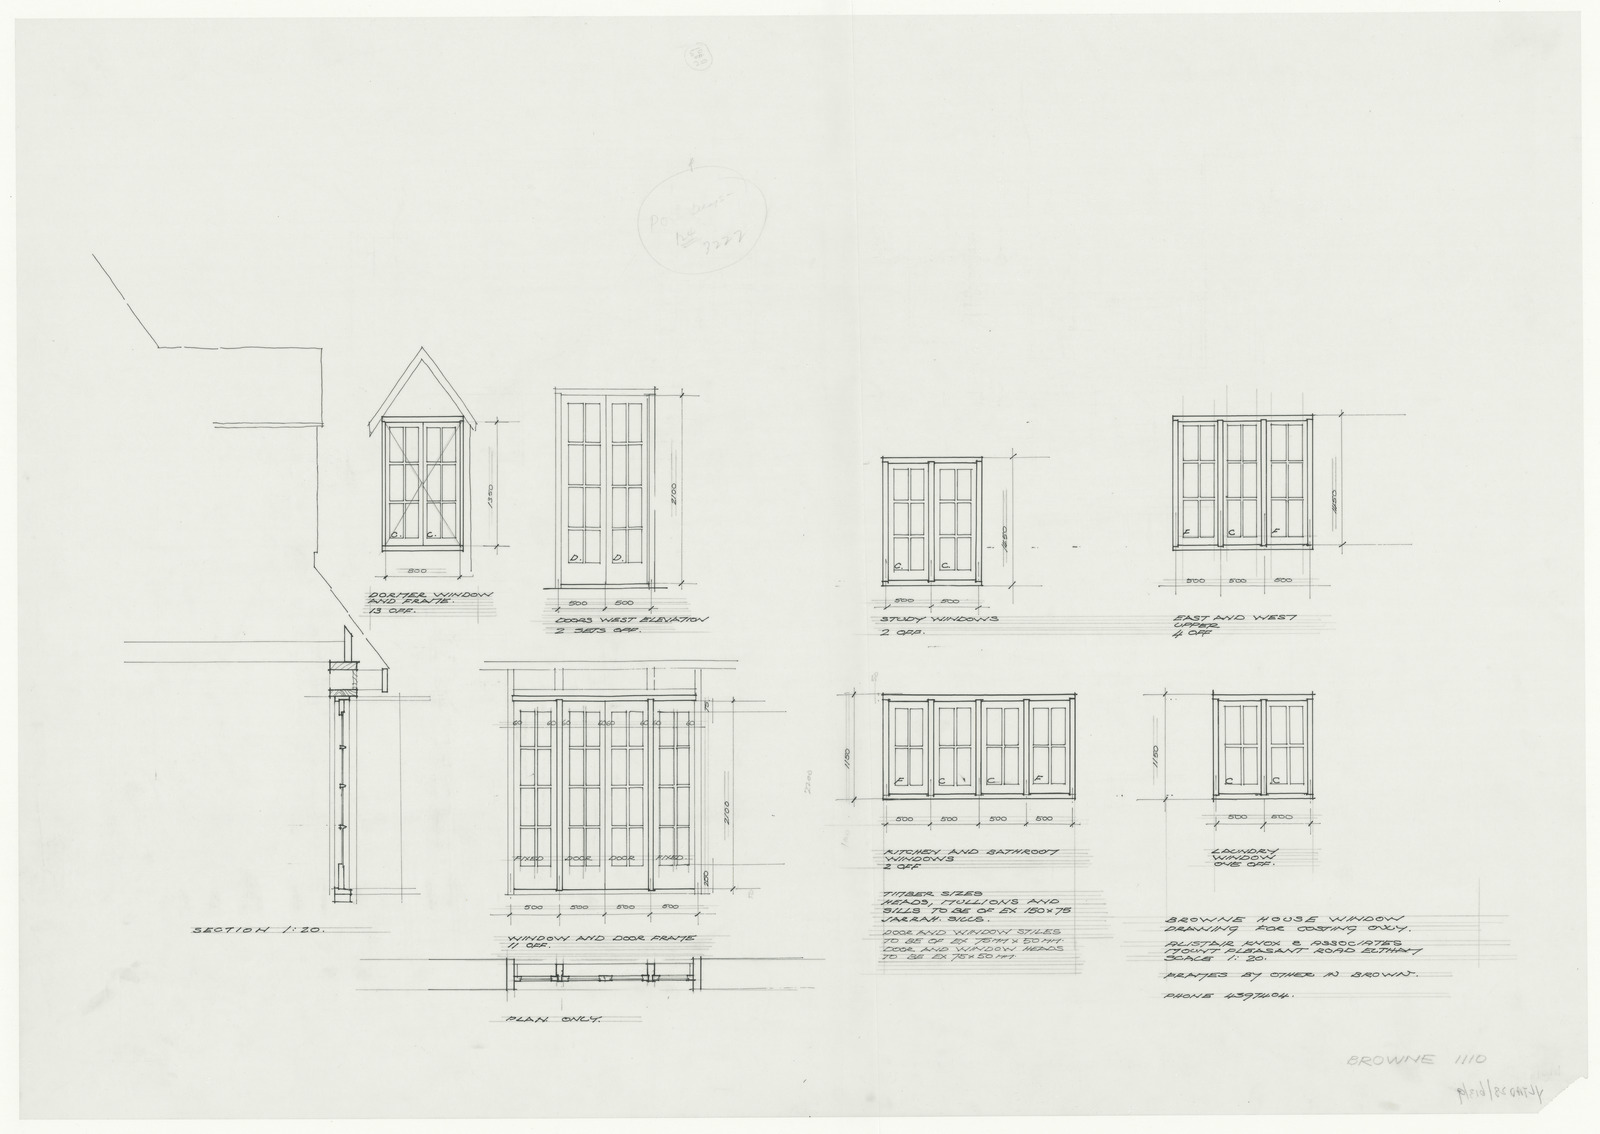 1350
C.
C.
800
DORMER WINDOW
AND FRAME.
13 OFF.
2100
D.
D.
500
500
DOORS WEST ELEVATION
2 SETS OFF.
C.
C.
500
500
STUDY WINDOWS
2 OFF.
F
C
F
500
500
500
EAST AND WEST
UPPER
4 OFF
SECTION 1:20.
60
60
60
60
60
60
60
75
2100
FIXED
DOOR
DOOR
FIXED
500
500
500
500
WINDOW AND DOOR FRAME
11 OFF.
PLAN ONLY.
1150
F
C
C
F
500
500
500
500
KITCHEN AND BATHROOM
WINDOWS
2 OFF
1150
C
C
500
500
LAUNDRY
WINDOW
ONE OFF.
TIMBER SIZES
HEADS, MULLIONS AND
SILLS TO BE OF EX 150x75
JARRAH. SILLS.
DOOR AND WINDOW STILES
TO BE OF EX 75MM x 50MM.
DOOR AND WINDOW HEADS
TO BE EX 75x50MM.
BROWNE HOUSE WINDOW
DRAWING FOR COSTING ONLY.
ALISTAIR KNOX & ASSOCIATES
MOUNT PLEASANT ROAD ELTHAM
SCALE 1:20.
FRAMES BY OTHER IN BROWN.
PHONE 4397404.
BROWNE 1110